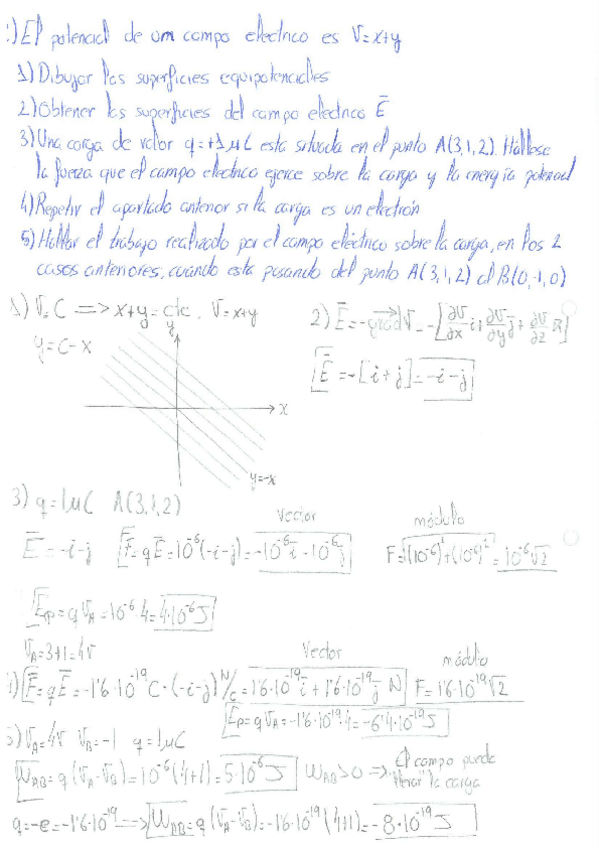 1) El potencial de un campo electrico es V=x+y
1) Dibujar las superficies equipotenciales
2) Obtener las superficies del campo electrico E⃗
3) Una carga de valor q=+1μC esta situada en el punto A(3,1,2). Hallese
la fuerza que el campo electrico ejerce sobre la carga y la energía potencial
4) Repetir el apartado anterior si la carga es un electrón
5) Hallar el trabajo realizado por el campo eléctrico sobre la carga, en los 2
casos anteriores, cuando esta pasando del punto A(3,1,2) al B(0,-1,0)
1) V=C ⟹ x+y=cte. V=x+y
y=c-x
y
x
y=-x
2) E⃗=-grad V=-[∂V/∂x i+∂V/∂y j+∂V/∂z k]
E⃗=-[i+j]=-i-j
3) q=1μC A(3,1,2)
E⃗=-i-j
vector
F⃗=qE⃗=10⁻⁶(-i-j)=-10⁻⁶i-10⁻⁶j
módulo
F=√(10⁻⁶)²+(10⁻⁶)²=10⁻⁶√2
Ep=qVA=10⁻⁶·4=4·10⁻⁶J
VA=3+1=4V
4) F⃗=qE⃗=-1'6·10⁻¹⁹C·(-i-j)N/C=1'6·10⁻¹⁹i+1'6·10⁻¹⁹j N
Vector
módulo
F=1'6·10⁻¹⁹√2
Ep=qVA=-1'6·10⁻¹⁹·4=-6'4·10⁻¹⁹J
5) VA=4V VB=-1 q=1μC
WAB=q(VA-VB)=10⁻⁶(4+1)=5·10⁻⁶J WAB>0 ⟹ El campo puede
"llevar" la carga
q=-e=-1'6·10⁻¹⁹ ⟹ WAB=q(VA-VB)=-1'6·10⁻¹⁹(4+1)=-8·10⁻¹⁹J